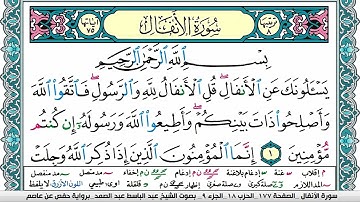 ترتيبها ٨
سُورَةُ الأَنْفَالِ
آياتها ٧٥
بِسْمِ ٱللَّهِ ٱلرَّحْمَٰنِ ٱلرَّحِيمِ
يَسْـَٔلُونَكَ عَنِ ٱلْأَنفَالِ ۖ قُلِ ٱلْأَنفَالُ لِلَّهِ وَٱلرَّسُولِ ۖ فَٱتَّقُوا۟ ٱللَّهَ
وَأَصْلِحُوا۟ ذَاتَ بَيْنِكُمْ ۖ وَأَطِيعُوا۟ ٱللَّهَ وَرَسُولَهُۥٓ إِن كُنتُم
مُّؤْمِنِينَ ١ إِنَّمَا ٱلْمُؤْمِنُونَ ٱلَّذِينَ إِذَا ذُكِرَ ٱللَّهُ وَجِلَتْ
سورة الأنفال _ الصفحة ١٧٧ _ الحزب ١٨ _ الجزء ٩ _ بصوت الشيخ عبد الباسط عبد الصمد _ برواية حفص عن عاصم